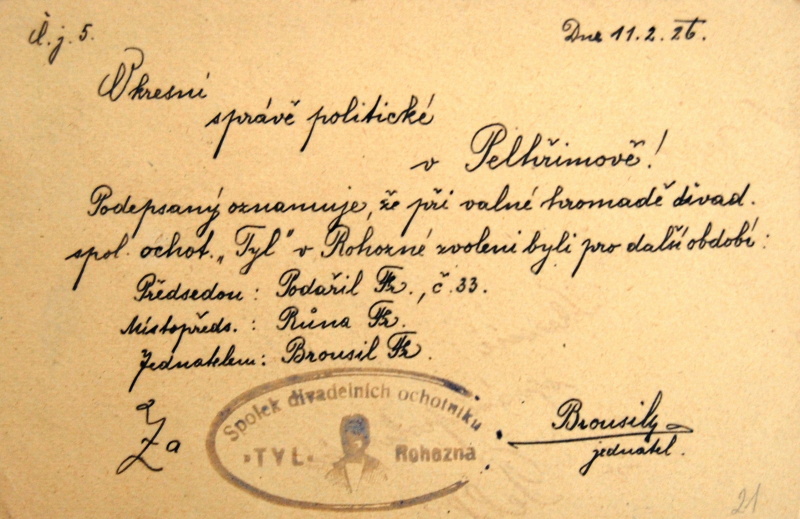 Č. j. 5.
Dne 11. 2. 26.
Okresní
správě politické
v Pelhřimově!
Podepsaný oznamuje, že při valné hromadě divad.
spol. ochot. „Tyl" v Rohozné zvoleni byli pro další období:
Předsedou: Podařil Fr., č. 33.
Místopředs.: Růna Fr.
Jednatelem: Brousil Fr.
Za
Spolek divadelních ochotníku
"TYL" Rohozna
Brousil
jednatel.
21